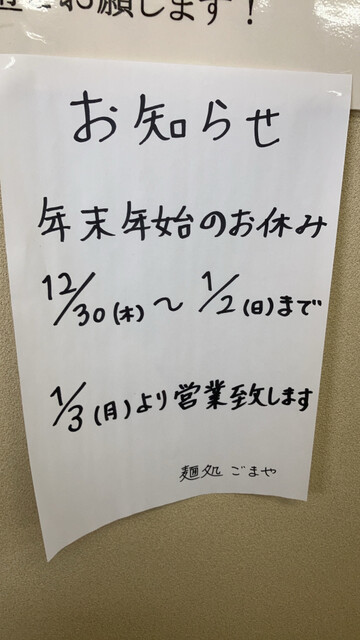 お願します！
お知らせ
年末年始のお休み
12/30(木)～1/2(日)まで
1/3(月)より営業致します
麺処 ごまや